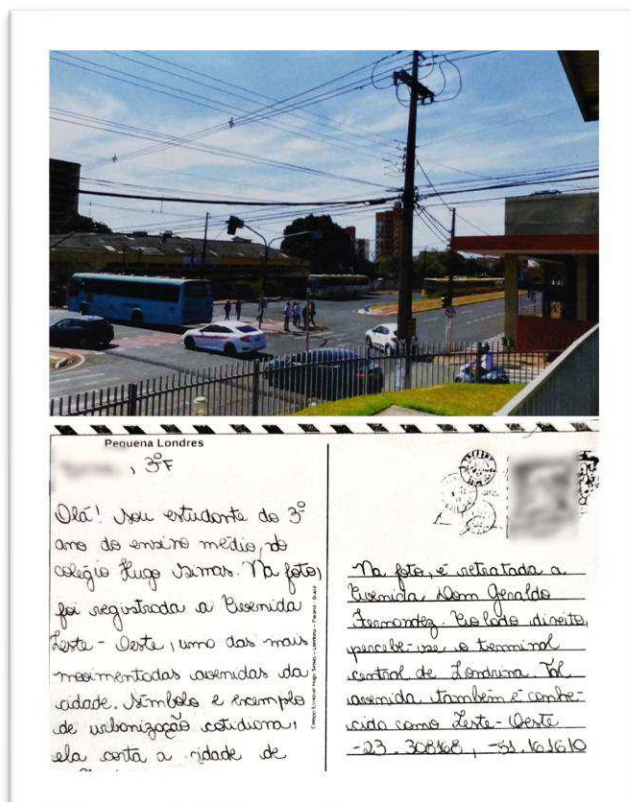 Pequena Londres
, 3ºF
Olá! Sou estudante do 3º
ano do ensino médio, do
colégio Hugo Simas. Na foto,
foi registrada a Avenida
Leste-Oeste, uma das mais
movimentadas avenidas da
cidade. Símbolo e exemplo
de urbanização cotidiana,
ela corta a cidade de
Na foto, é retratada a
Avenida Dom Geraldo
Fernandez. Ao lado direito,
percebe-se o terminal
central de Londrina. Tal
avenida também é conhe-
cida como Leste-Oeste
-23.308168, -51.161610